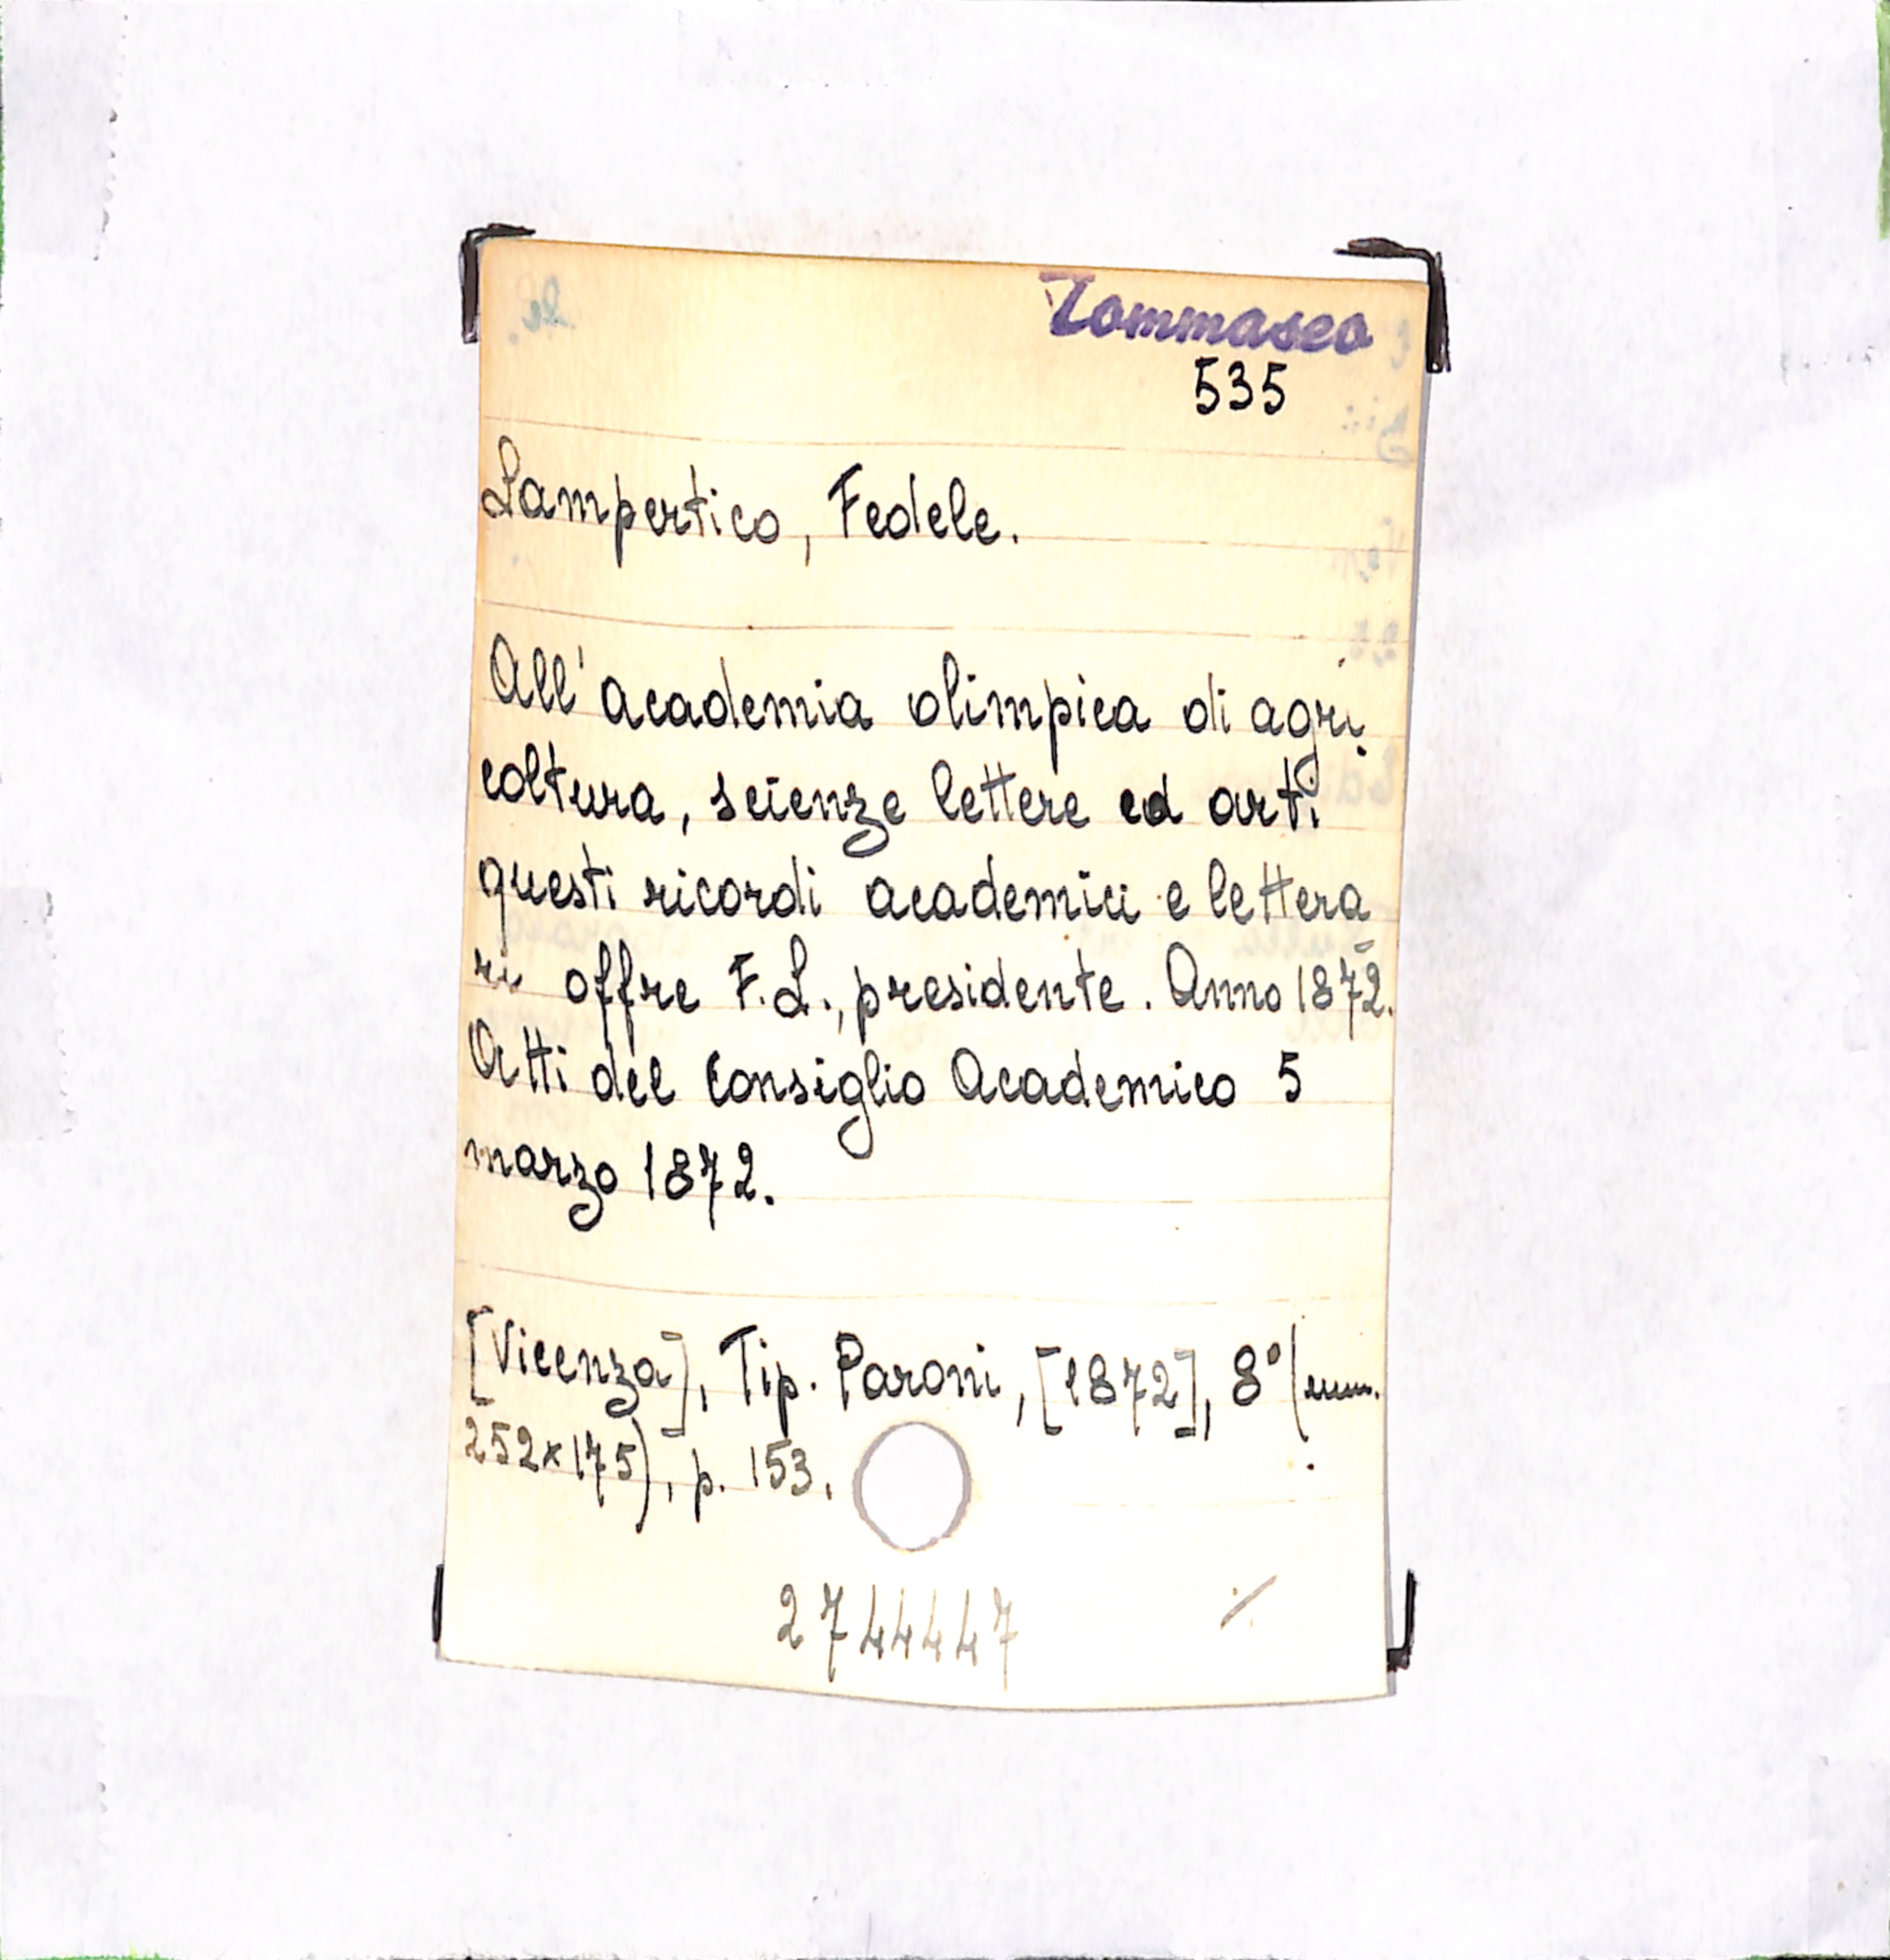 Tommaseo
535
Lampertico, Fedele.
All'academia olimpica di agri
coltura, scienze lettere ed arti
questi ricordi academici e lettera
ri offre F.L., presidente. Anno 1872.
Atti del Consiglio Academico 5
marzo 1872.
[Vicenza], Tip. Paroni, [1872], 8° (mm.
252x175), p. 153.
2744447